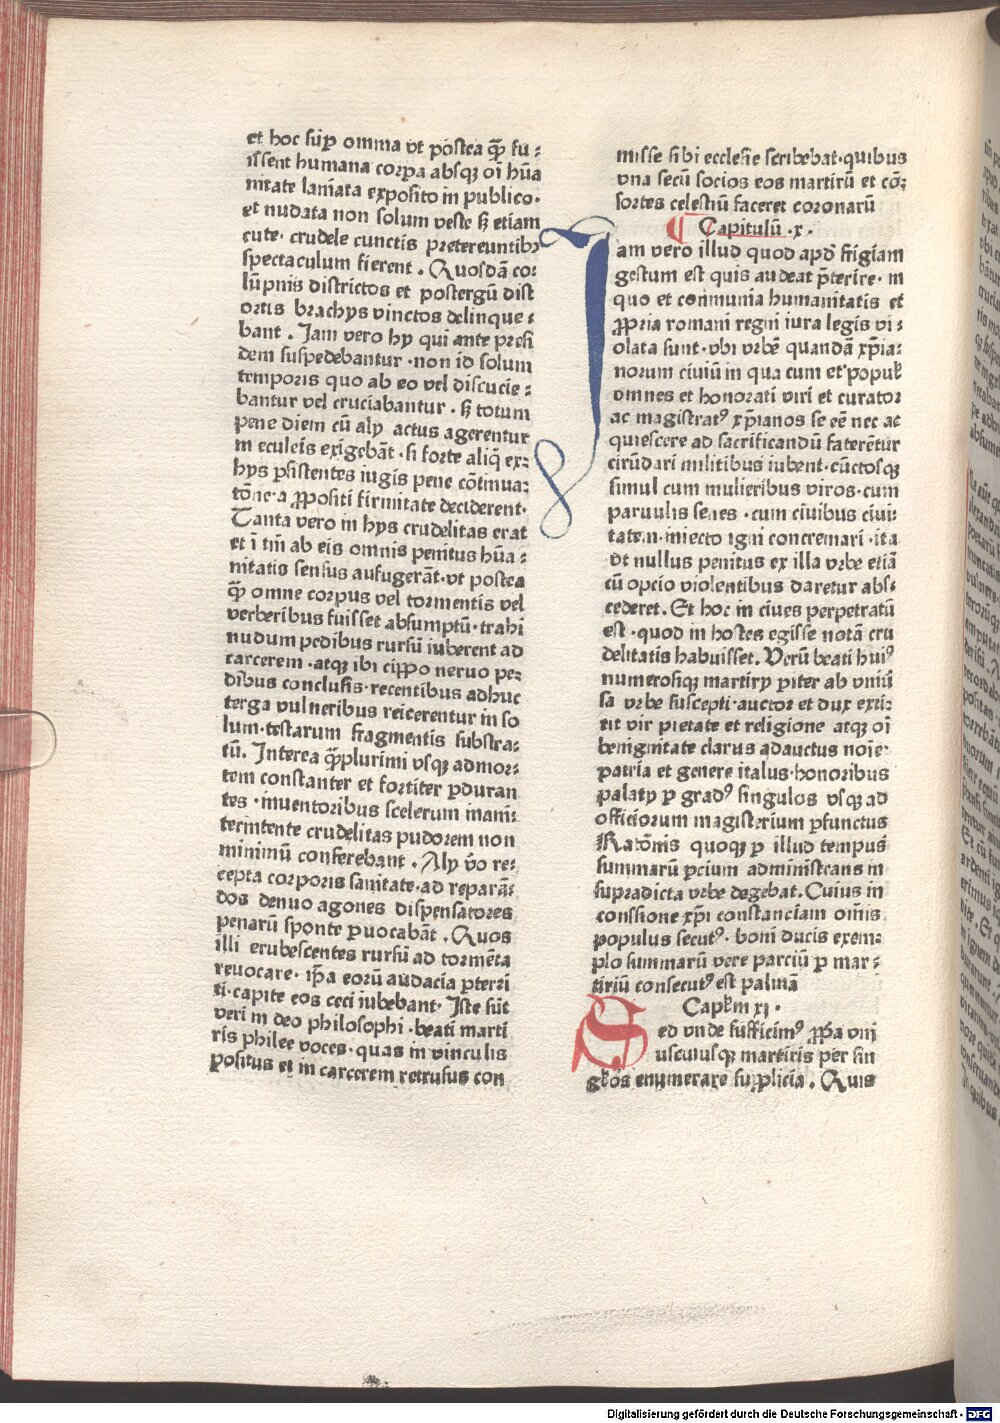 et hoc sup̄ omnia vt postea q̄ꝫ fu⸗
issent humana corꝑa absqꝫ oi hūa
nitate laniata exposito in publico·
et nudata non solum veste sꝫ etiam
cute· crudele cunctis pretereuntibꝫ
spectaculum fierent . Quosdā co⸗
lūpnis districtos et postergū dist
ortis brachys vinctos delinque⸗
bant . Jam vero hy qui ante presi
dem suspēdebantur ·non id solum
temporis quo ab eo vel discucie⸗
bantur vel cruciabantur . sꝫ totum
pene diem cū aly actus agerentur
in eculeis exigebāt · si forte aliq̄ ex⸗
hys ꝑsistentes iugis pene cōtinua⸗
tōne·a ꝓpositi firmitate deciderent·
Tanta vero in hys crudelitas erat
et ī tm̄ ab eis omnis penitus hūa⸗
nitatis sensus aufugerāt·vt postea
q̄ꝫ omne corpus vel tormentis vel
verberibus fuisset absumptū·trahi
nudum pedibus rursū iuberent ad
carcerem ·atqꝫ ibi cippo neruo pe⸗
dibus conclusis·recentibus adhuc
terga vulneribus reicerentur in so
lum·testarum fragmentis substra⸗
tū. Interea q̄ꝫplurimi vsqꝫ admor⸗
tem constanter et fortiter ꝑduran
tes ·inuentoribus scelerum inani⸗
terintente crudelitas pudorem non
minimū conferebant . Aly v̄o re⸗
cepta corporis sanitate·ad reparā⸗
dos denuo agones dispensatores
penarū sponte ꝓuocabāt . Quos
illi erubescentes rursū ad tormēta
reuocare· ip̄a eorū audacia ꝑterri
ti·capite eos ceci iubebant· Iste sūt
veri in deo philosophi ·beati marti
ris philee voces·quas in vinculis
positus et in carcerem retrusus con
misse sibi ecclesie scribebat·quibus
vna secū socios eos martirū et cō⸗
sortes celestiū faceret coronarū
¶ Capitulū .x.
Jam vero illud quod apd̓ frigiam
gestum est quis audeat p̄terire· in
quo et communia humanitatis et
ꝓpria romani regni iura legis vi⸗
olata sunt·vbi vrbē quandā xp̄ia⸗
norum ciuiū in qua cum et popul̓
omnes et honorati viri et curator
ac magistratꝰ xp̄ianos se eē nec ac
quiescere ad sacrificandū faterētur
cirūdari militibus iubent·cūctosqꝫ
simul cum mulieribus viros·cum
paruulis senes ·cum ciuibus ciui⸗
tatem·iniecto igni concremari·ita
vt nullus penitus ex illa vrbe etiā
cū opcio violentibus daretur abs⸗
cederet. Et hoc in ciues perpetratū
est ·quod in hostes egisse notā cru
delitatis habuisset. Verū beati huiꝰ
numerosiqꝫ martiry ꝑiter ab vniū
sa vrbe suscepti·auctor et dux exti⸗
tit vir pietate et religione atqꝫ oī
benignitate clarus adauctus noīe·
patria et genere italus·honoribus
palaty ꝑ gradꝰ singulos vsqꝫ ad
officiorum magisterium ꝑfunctus
Ratōnis quoqꝫ ꝑ illud tempus
summarū ꝑcium administrans in
supradicta vrbe degebat. Cuius in
confessione xp̄i constanciam om̄is
populus secutꝰ· boni ducis exem⸗
plo summarū vere parciū ꝑ mar⸗
tiriū consecutꝰ est palmā
Capl̓m xi .
Sed vnde sufficimꝰ ꝓba vni
uscuiusqꝫ martiris per sin
gl̓os enumerare supplicia . Quis
Digitalisierung gefördert durch die Deutsche Forschungsgemeinschaft - DFG